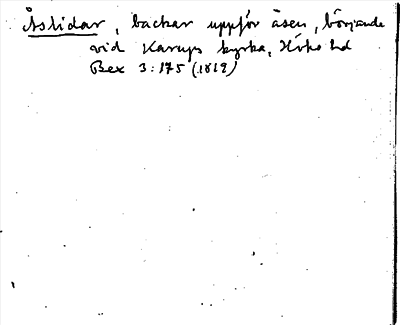 Åslidar, backar uppför åsen, börjande
vid Karups kyrka, Höks hd
Bex 3:175 (1812)